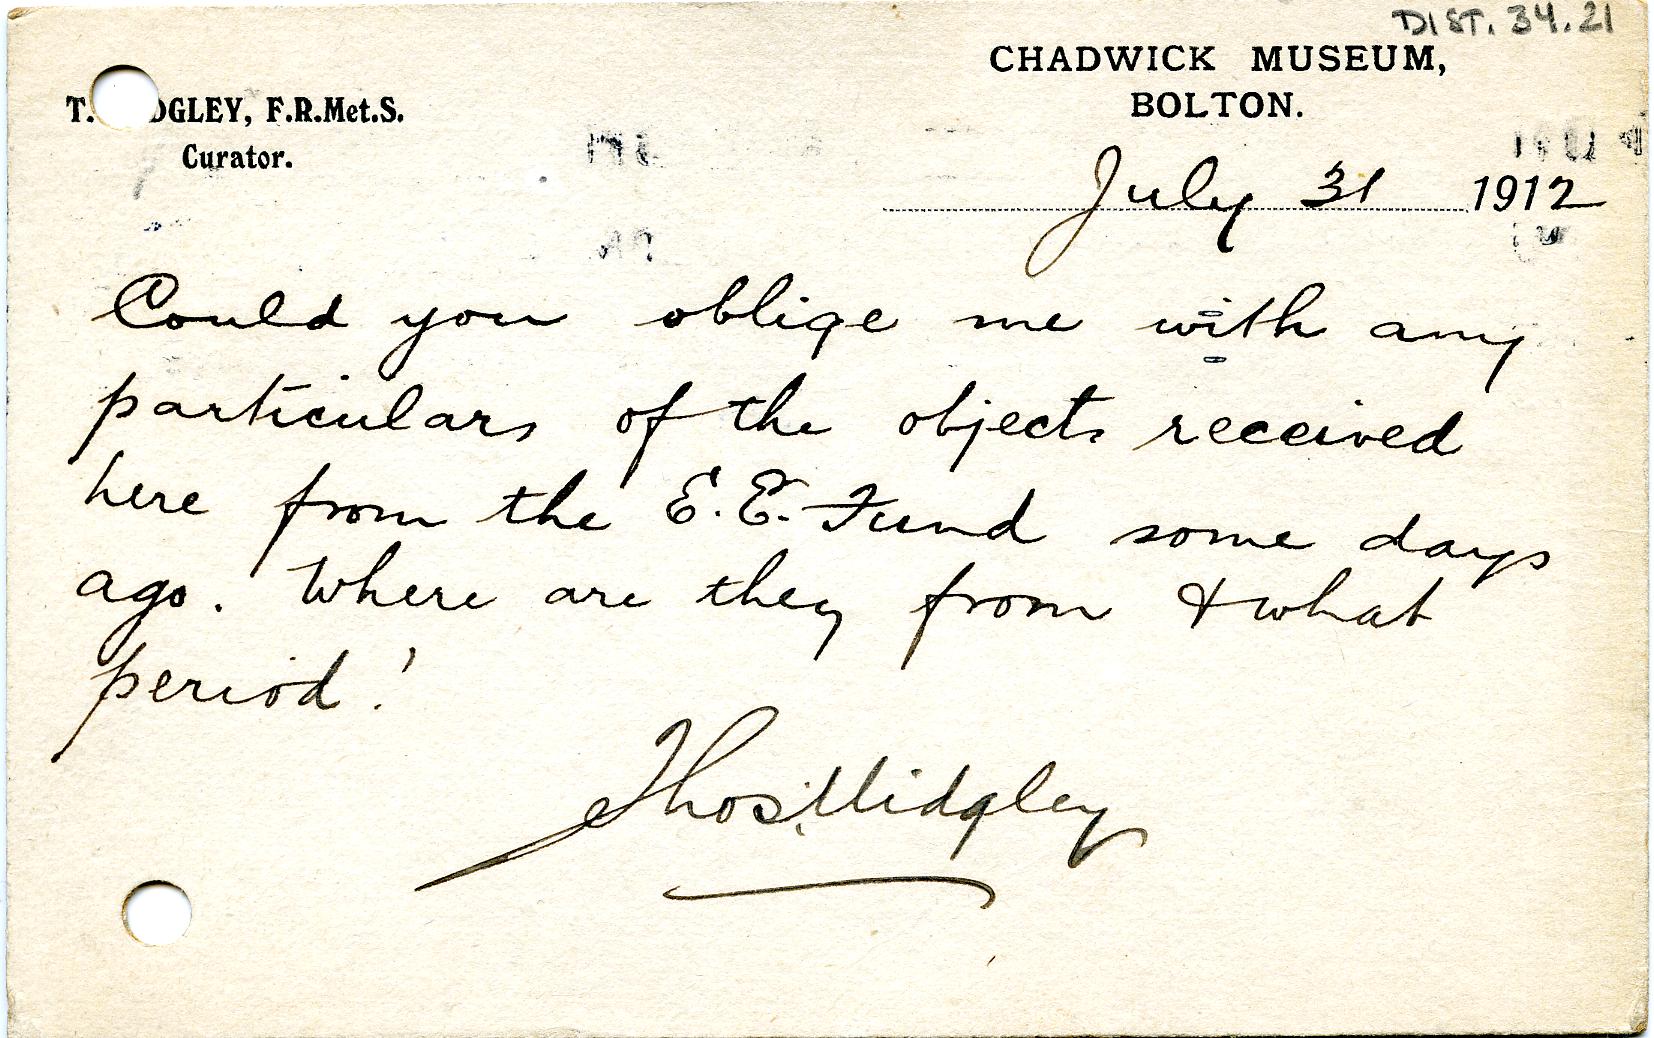 DIST. 34.21
CHADWICK MUSEUM,
BOLTON.
T. DGLEY, F.R.Met.S.
Curator.
July 31 1912
Could you oblige me with any
particulars of the objects received
here from the E.E. Fund some days
ago. Where are they from & what
period?
Thos. Midgley